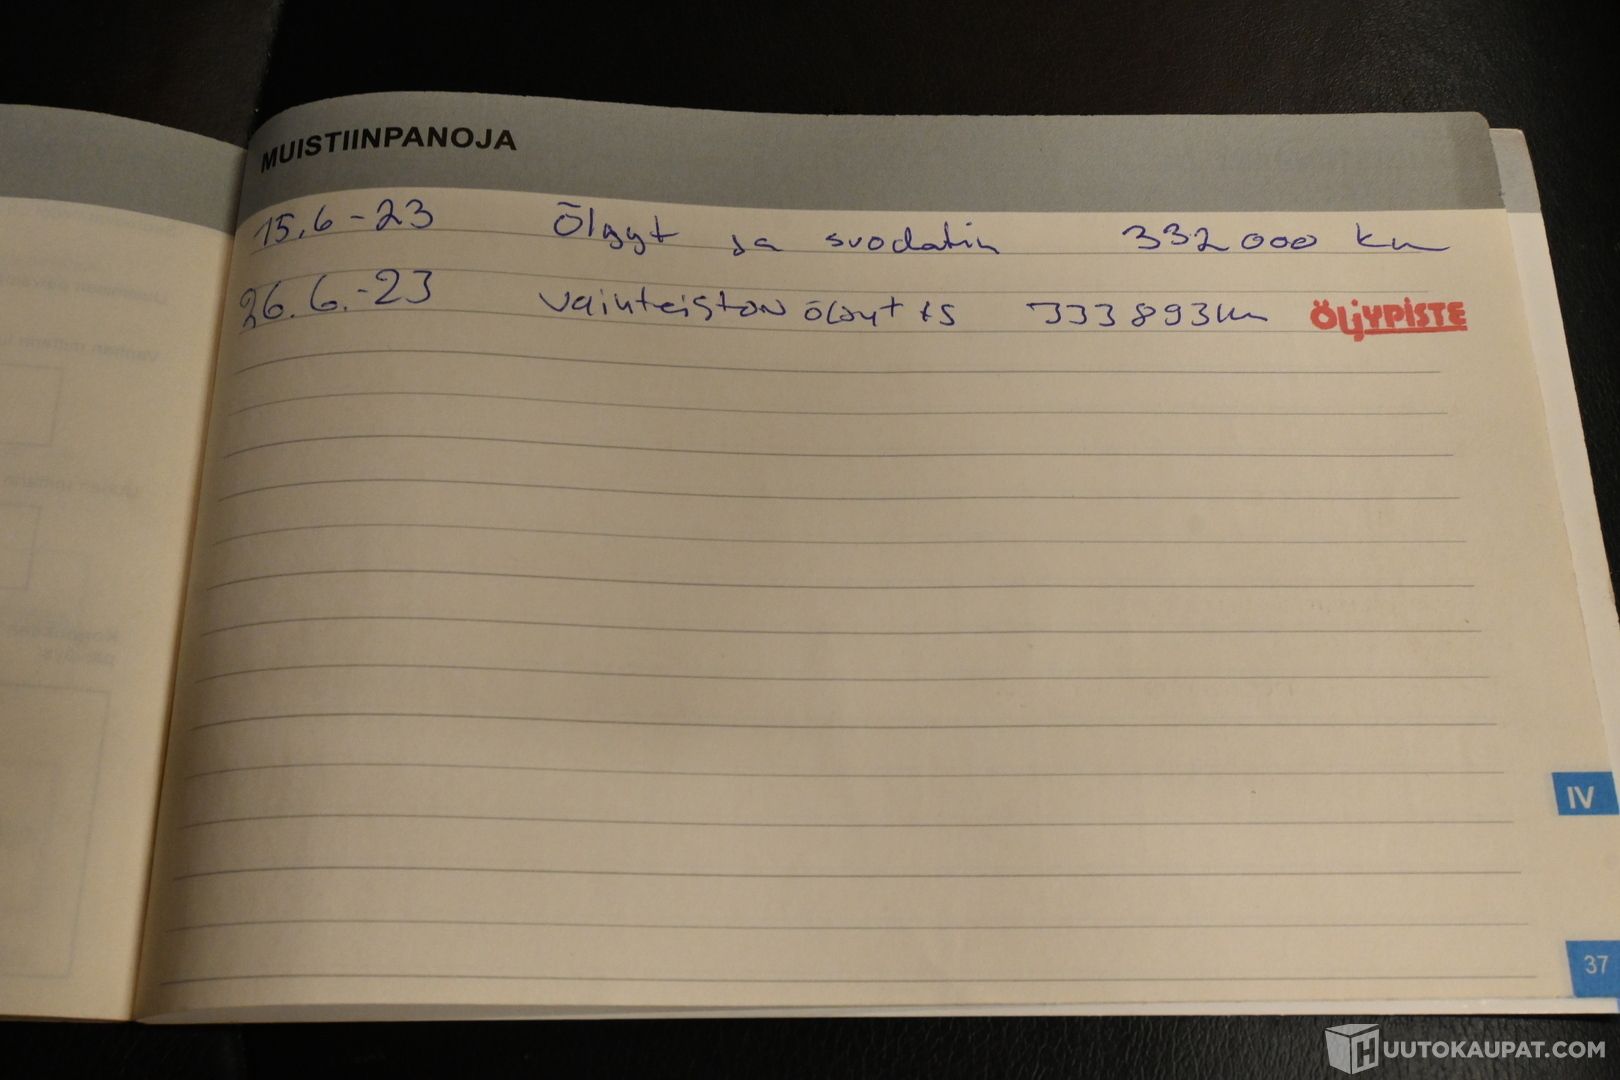 MUISTIINPANOJA
15.6-23 Öljyt ja suodatin 332 000 km
26.6.-23 vaihteiston öljyt ts 333 893 km ÖLJYPISTE
IV
37
HUUTOKAUPAT.COM